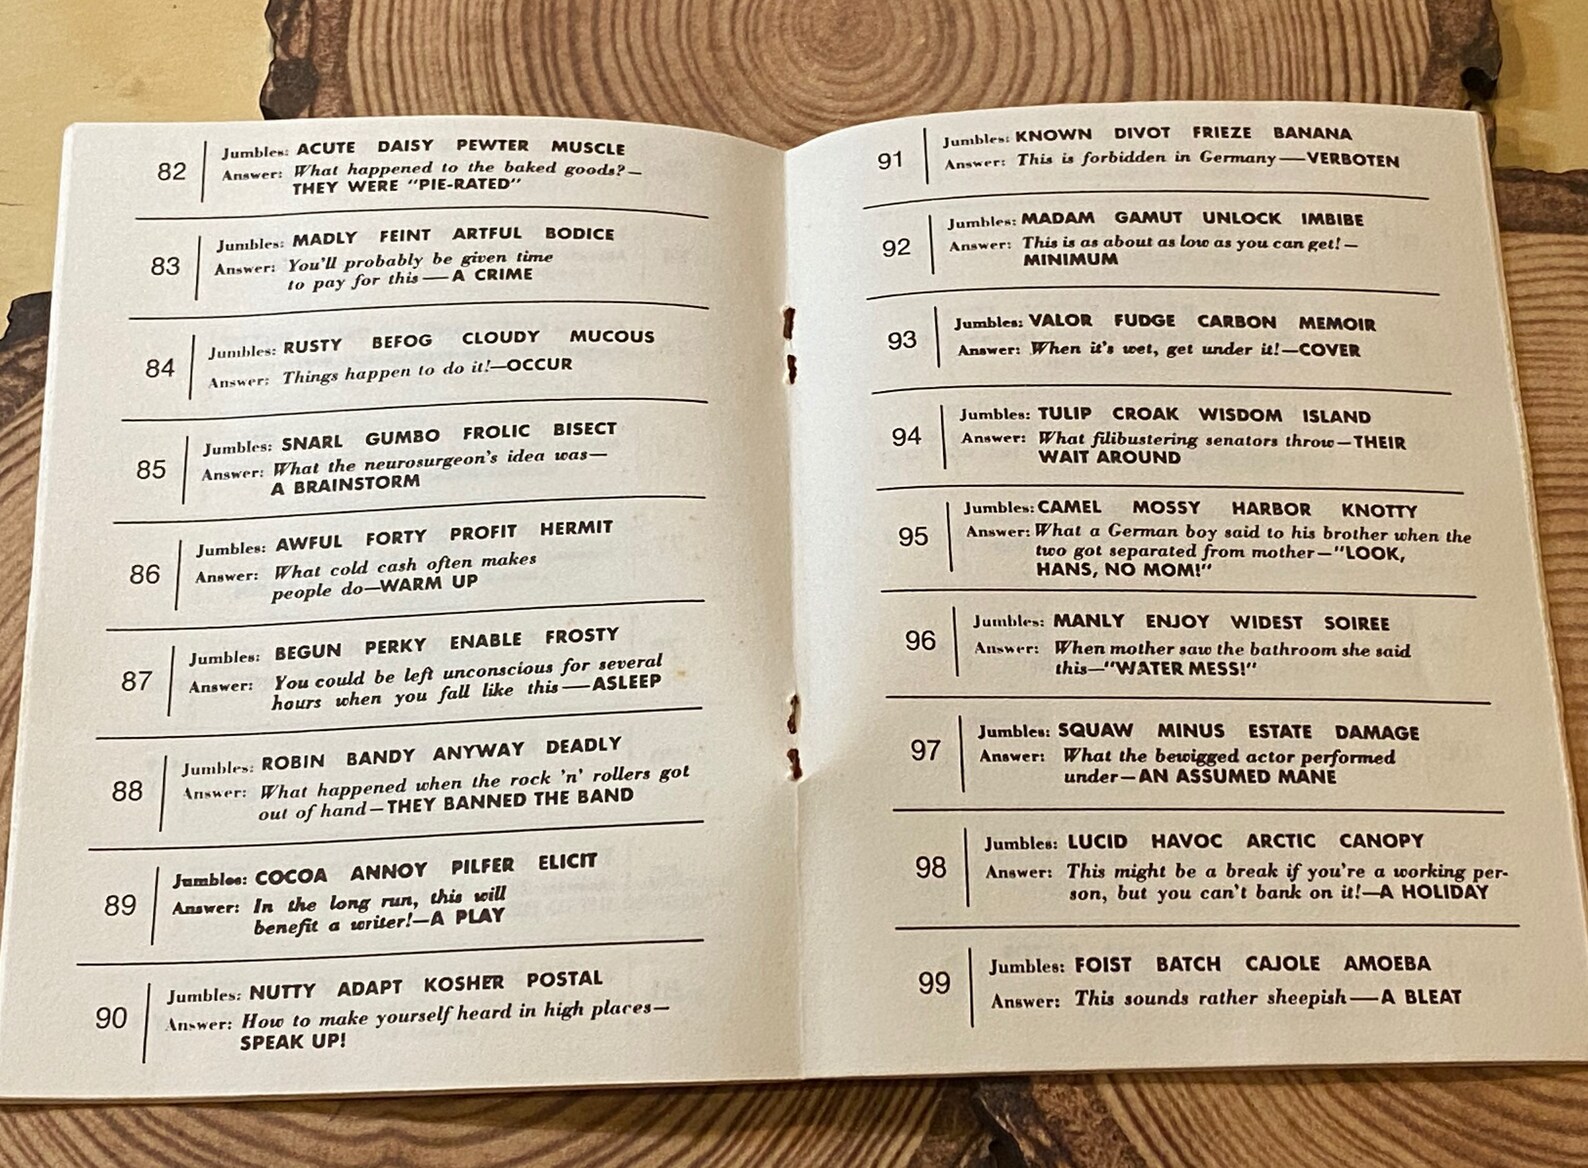 82
Jumbles: ACUTE DAISY PEWTER MUSCLE
Answer: What happened to the baked goods?—
THEY WERE "PIE-RATED"
83
Jumbles: MADLY FEINT ARTFUL BODICE
Answer: You'll probably be given time
to pay for this—A CRIME
84
Jumbles: RUSTY BEFOG CLOUDY MUCOUS
Answer: Things happen to do it!—OCCUR
85
Jumbles: SNARL GUMBO FROLIC BISECT
Answer: What the neurosurgeon's idea was—
A BRAINSTORM
86
Jumbles: AWFUL FORTY PROFIT HERMIT
Answer: What cold cash often makes
people do—WARM UP
87
Jumbles: BEGUN PERKY ENABLE FROSTY
Answer: You could be left unconscious for several
hours when you fall like this—ASLEEP
88
Jumbles: ROBIN BANDY ANYWAY DEADLY
Answer: What happened when the rock 'n' rollers got
out of hand—THEY BANNED THE BAND
89
Jumbles: COCOA ANNOY PILFER ELICIT
Answer: In the long run, this will
benefit a writer!—A PLAY
90
Jumbles: NUTTY ADAPT KOSHER POSTAL
Answer: How to make yourself heard in high places—
SPEAK UP!
91
Jumbles: KNOWN DIVOT FRIEZE BANANA
Answer: This is forbidden in Germany—VERBOTEN
92
Jumbles: MADAM GAMUT UNLOCK IMBIBE
Answer: This is as about as low as you can get!—
MINIMUM
93
Jumbles: VALOR FUDGE CARBON MEMOIR
Answer: When it's wet, get under it!—COVER
94
Jumbles: TULIP CROAK WISDOM ISLAND
Answer: What filibustering senators throw—THEIR
WAIT AROUND
95
Jumbles: CAMEL MOSSY HARBOR KNOTTY
Answer: What a German boy said to his brother when the
two got separated from mother—"LOOK,
HANS, NO MOM!"
96
Jumbles: MANLY ENJOY WIDEST SOIREE
Answer: When mother saw the bathroom she said
this—"WATER MESS!"
97
Jumbles: SQUAW MINUS ESTATE DAMAGE
Answer: What the bewigged actor performed
under—AN ASSUMED MANE
98
Jumbles: LUCID HAVOC ARCTIC CANOPY
Answer: This might be a break if you're a working per-
son, but you can't bank on it!—A HOLIDAY
99
Jumbles: FOIST BATCH CAJOLE AMOEBA
Answer: This sounds rather sheepish—A BLEAT